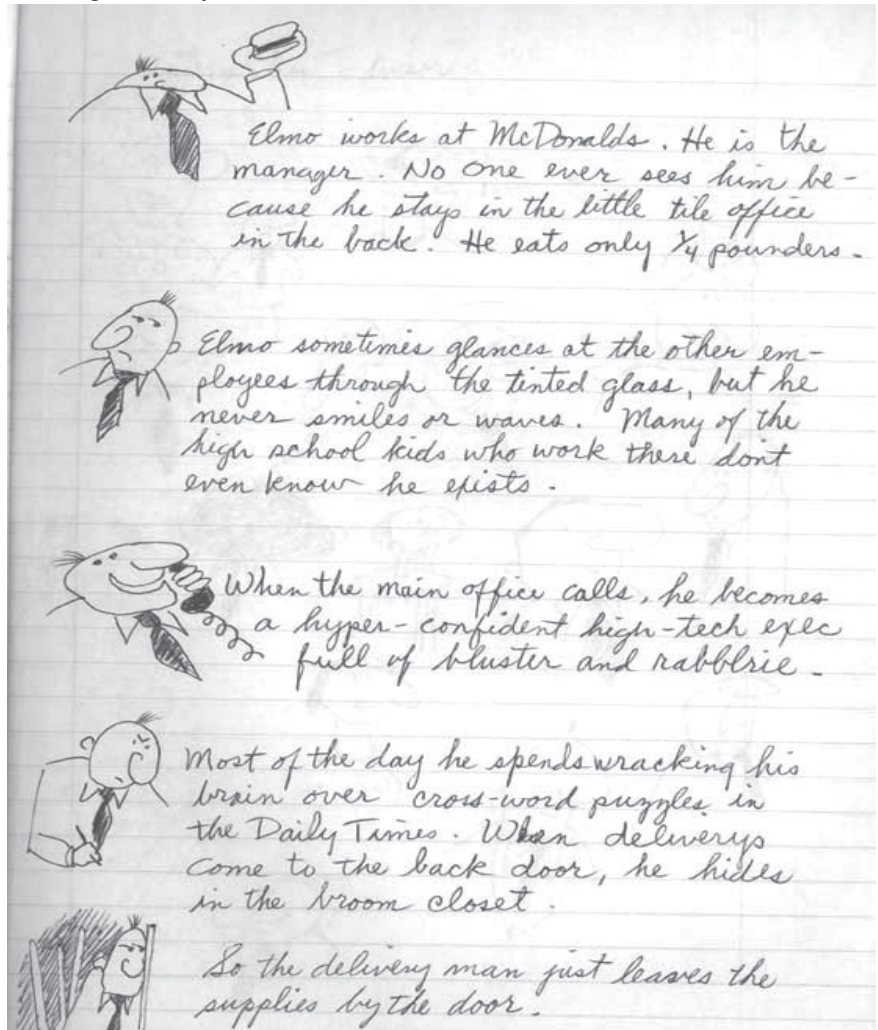 Elmo works at McDonalds. He is the
manager. No one ever sees him be-
cause he stays in the little tile office
in the back. He eats only 1/4 pounders.
Elmo sometimes glances at the other em-
ployees through the tinted glass, but he
never smiles or waves. Many of the
high school kids who work there dont
even know he exists.
When the main office calls, he becomes
a hyper-confident high-tech exec
full of bluster and rabblrie.
Most of the day he spends wracking his
brain over cross-word puzzles in
the Daily Times. When deliverys
come to the back door, he hides
in the broom closet.
So the delivery man just leaves the
supplies by the door.